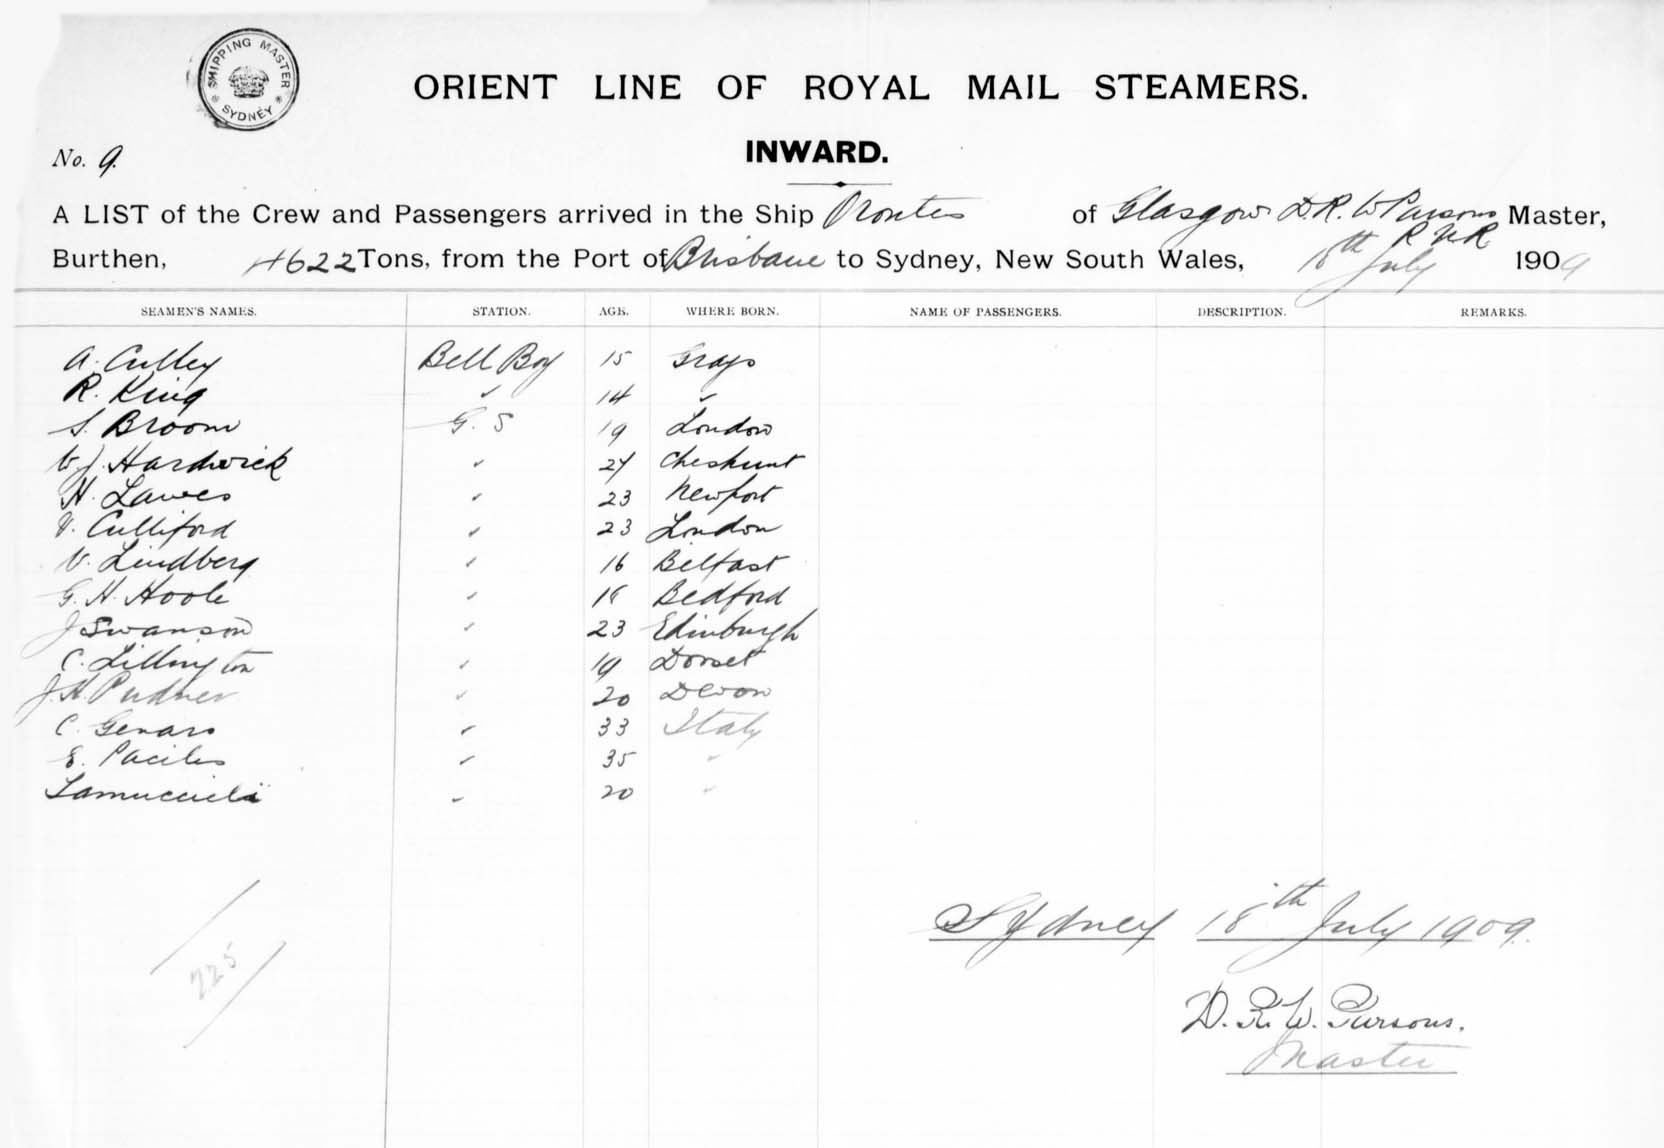 SHIPPING MASTER
SYDNEY
ORIENT LINE OF ROYAL MAIL STEAMERS.
No. 9.
INWARD.
A LIST of the Crew and Passengers arrived in the Ship Orontes of Glasgow D. R. W Parsons Master,
R N R
Burthen, 4622 Tons, from the Port of Brisbane to Sydney, New South Wales, 18th July 1909
SEAMEN'S NAMES. STATION. AGE. WHERE BORN. NAME OF PASSENGERS. DESCRIPTION. REMARKS.
A. Culley Bell Boy 15 Grays
R. King ✓ 14 ✓
S. Broom G. S 19 London
W J. Hardwick ✓ 24 Cheshunt
H. Lawes ✓ 23 Newport
V. Culliford ✓ 23 London
V. Lindberg ✓ 16 Belfast
G. H. Hoole ✓ 18 Bedford
J Swanson ✓ 23 Edinburgh
C. Lillington ✓ 19 Dorset
J. H. Pudner ✓ 20 Devon
C. Genaro ✓ 33 Italy
E. ✓ 35 ✓
✓ 20 ✓
225
Sydney 18th July 1909.
D. R. W. Parsons.
Master